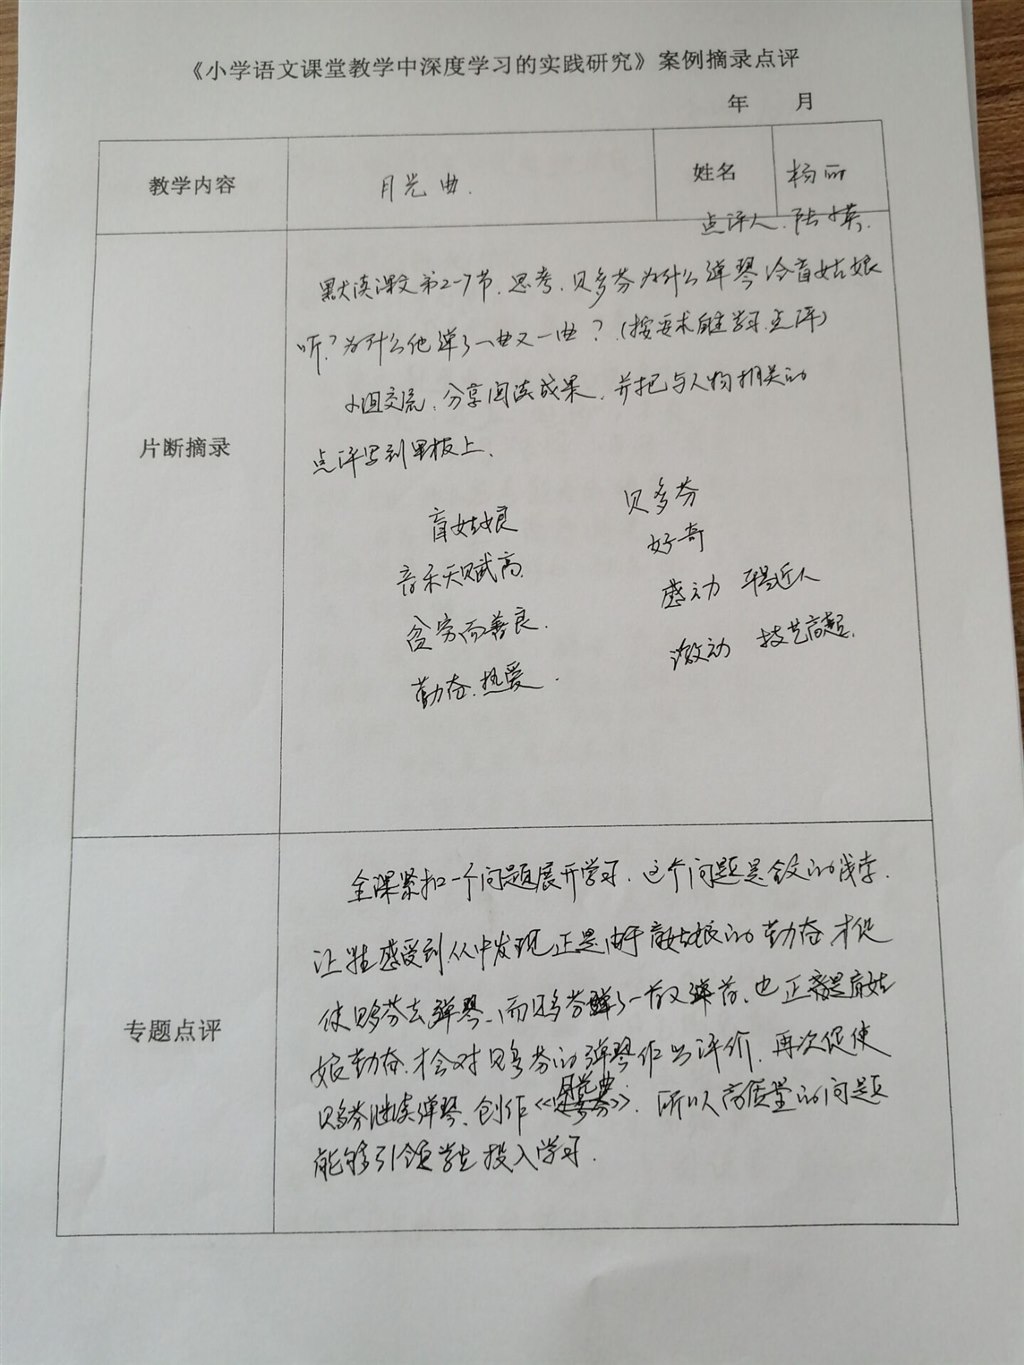 《小学语文课堂教学中深度学习的实践研究》案例摘录点评
年 月
教学内容 月光曲. 姓名 杨丽
点评人.陆英.
片断摘录
默读课文第2-7节.思考.贝多芬为什么弹琴给盲姑娘
听?为什么他弹了一曲又一曲?(按要求自主学习.点评)
小组交流.分享阅读成果.并把与人物相关的
点评写到黑板上.
盲姑娘 贝多芬
音乐天赋高. 好奇
贫穷而善良. 感动 平易近人
勤奋.热爱. 激动 技艺高超.
专题点评
全课紧扣一个问题展开学习.这个问题是全文的线索.
让学生感受到从中发现正是由于盲姑娘的勤奋才促
使贝多芬去弹琴.而贝多芬弹了一首又弹一首.也正是盲姑
娘勤奋.才会对贝多芬的弹琴作出评价.再次促使
贝多芬继续弹琴.创作《月光曲》.所以高质量的问题
能够引领学生投入学习.